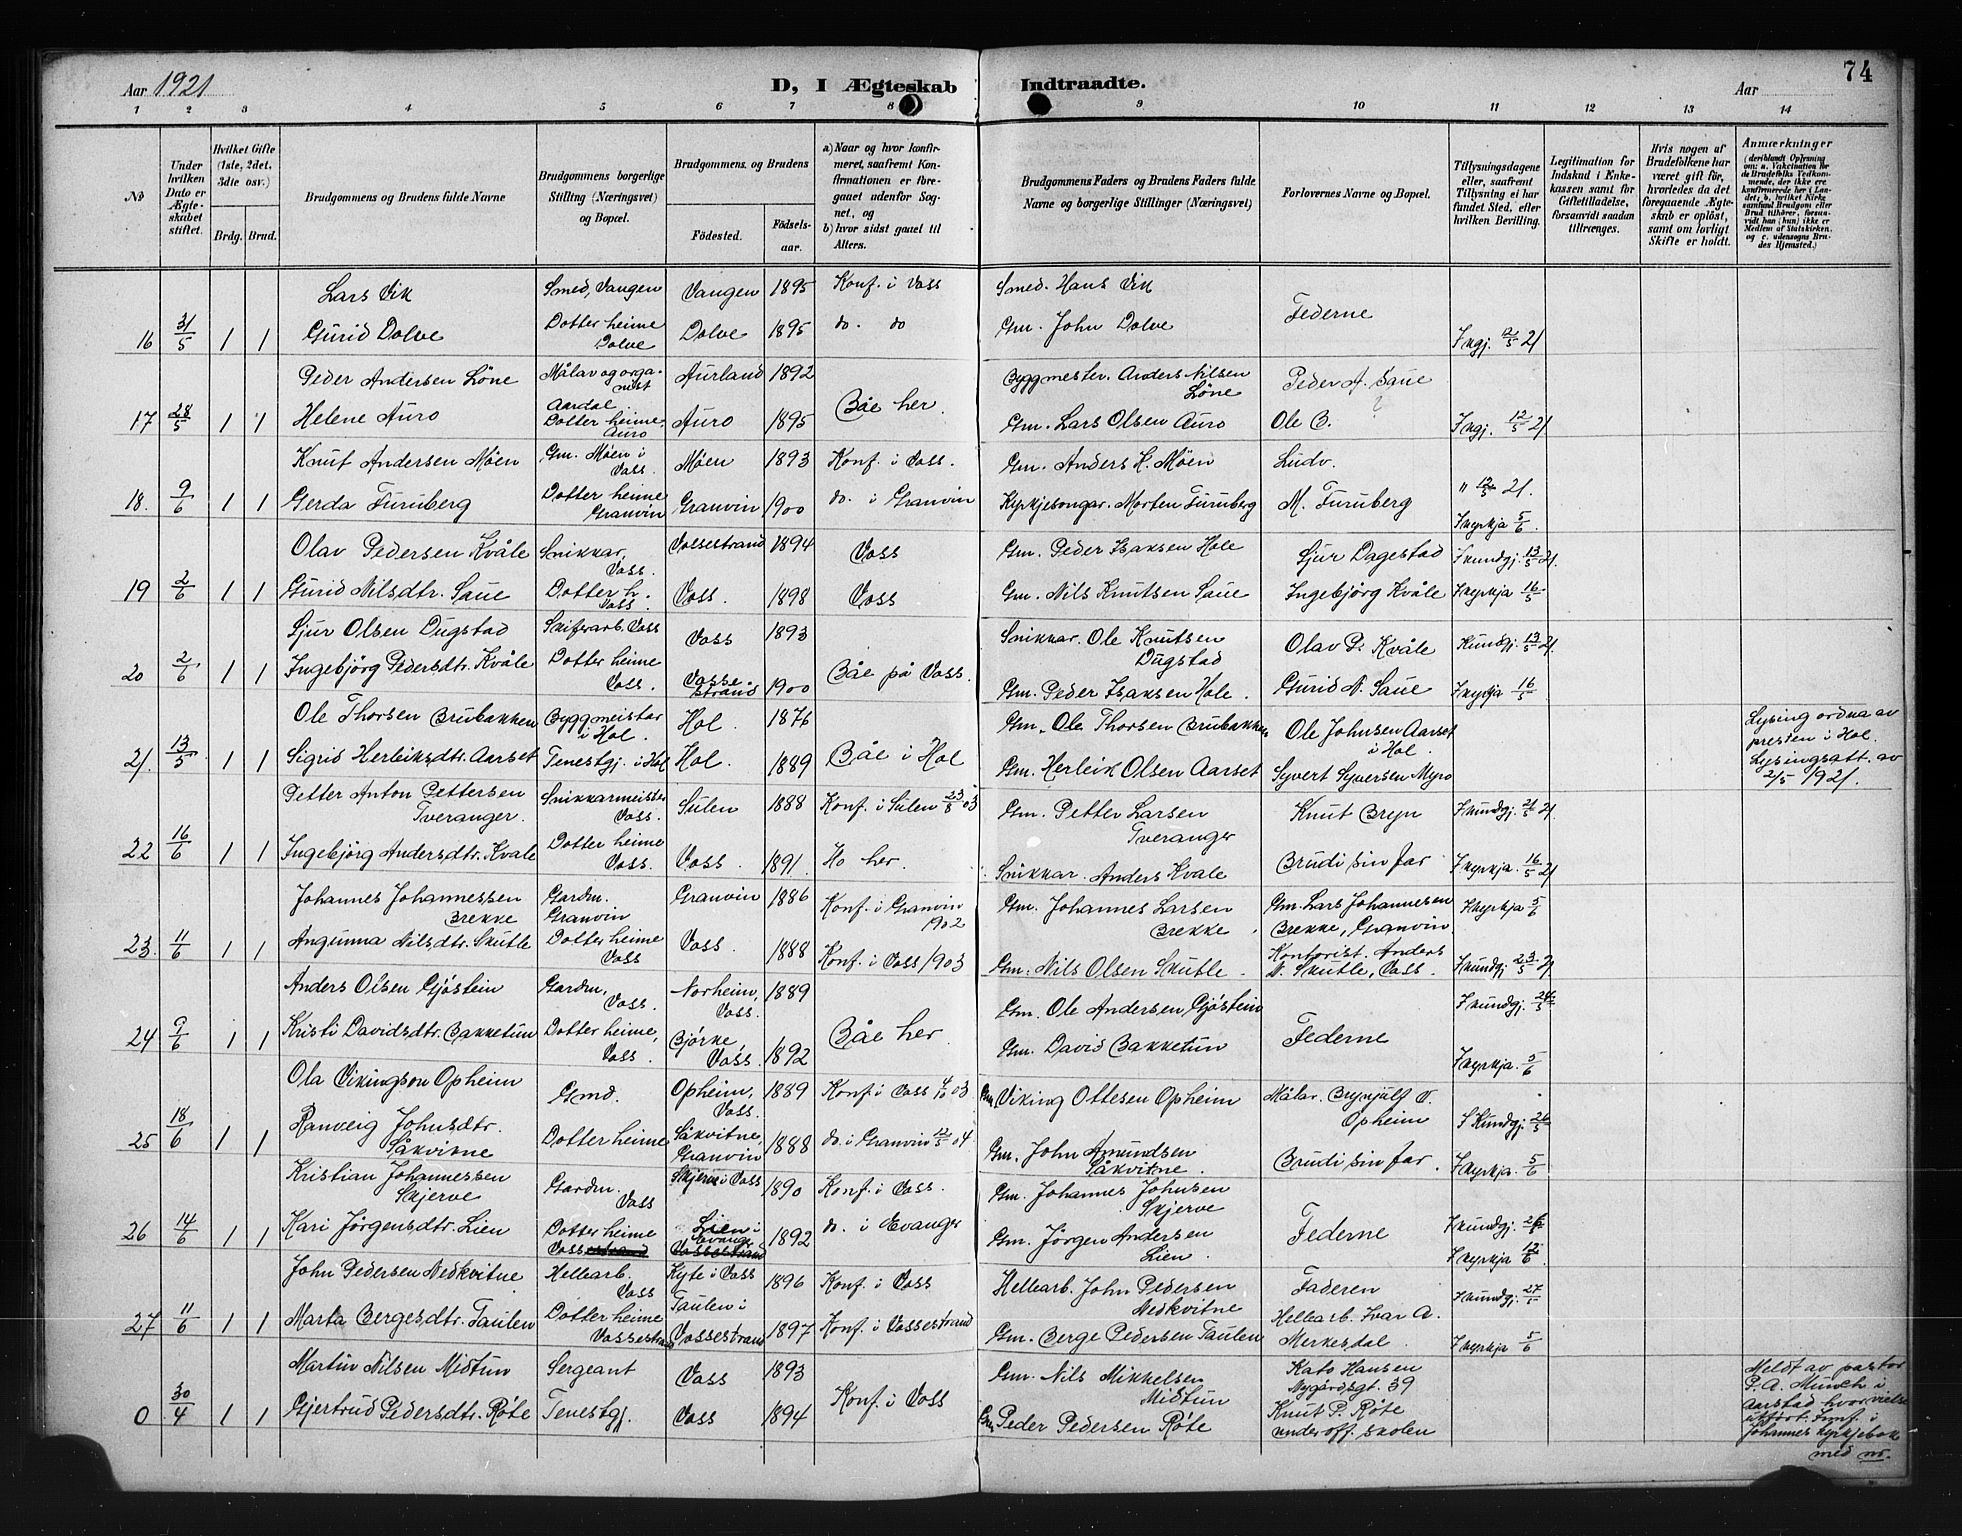 Aar 1921
D, I Ægteskab Indtraadte.
74
Aar
1 2 3 4 5 6 7 8 9 10 11 12 13 14
No
Under hvilken Dato er Ægteskabet stiftet.
Hvilket Gifte (1ste, 2det, 3die osv.)
Brdg. Brud.
Brudgommens og Brudens fulde Navne
Brudgommens borgerlige Stilling (Næringsvei) og Bopæl.
Brudgommens og Brudens
Födested.
Födselsaar.
a) Naar og hvor konfirmeret, saafremt Konfirmationen er foregaaet udenfor Sognet, og
b) hvor sidst gaaet til Alters.
Brudgommens Faders og Brudens Faders fulde Navne og borgerlige Stillinger (Næringsvei)
Forlovernes Navne og Bopæl.
Tillysningsdagene eller, saafremt Tillysning ei har fundet Sted, efter hvilken Bevilling.
Legitimation for Indskud i Enkekassen samt for Giftetilladelse, forsaavidt saadan tiltrænges.
Hvis nogen af Brudefolkene har været gift før, hvorledes da det foregaaende Ægteskab er oplöst, samt om lovligt Skifte er holdt.
Anmærkninger
(deriblandt Oplysning om: a. Vakcination for de Brudefolks Vedkommende, der ikke ere konfirmerede her i Landet; b. hvilket Kirkesamfund Brudgom eller Brud tilhörer, forsaavidt han (hun) ikke er Medlem af Statskirken, og c. udensogns Brudes Hjemsted.)
Lars Vik Smed, Vangen Vangen 1895 Konf. i Voss Smed. Hans Vik Federne
16 31/5 1 1 Gurid Dolve Dotter heime Dolve Dolve 1895 do. do Gm. John Dolve Ikgj. 12/5 21
Peder Andersen Löne Målar og organist Aardal Aurland 1892 Båe her. Byggmester. Anders Nilsen Löne Peder A. Saue
17 28/5 1 1 Helene Auro Dotter heime, Auro Auro 1895 Gm. Lars Olsen Auro Ole B. Ikgj. 12/5 21
Knut Andersen Möen Gm. Möen i Voss. Möen 1893 Konf. i Voss. Gm. Anders K. Möen Ludv.
18. 9/6 1 1 Gerda Furuberg Dotter heime Granvin Granvin 1900 do. i Granvin Kyrkjesongar. Morten Furuberg M. Furuberg " 12/5 21. I kyrkja 5/6
Olav Pedersen Kvåle Snikkar, Voss. Vossestrand 1894 Voss Gm. Peder Isaksen Hole Sjur Dagestad I kundgj. 13/5 21.
19 2/6 1 1 Gurid Nilsdtr. Saue Dotter h. Voss. Voss. 1898 Voss Gm. Nils Knutsen Saue Ingebjörg Kvåle I kyrkja 16/5
Sjur Olsen Dugstad Skiferarb. Voss Voss 1893 Båe på Voss. Snikkar. Ole Knutsen Dugstad Olav P. Kvåle Kundgj. 13/5 21.
20 2/6 1 1 Ingebjörg Pedersdtr. Kvåle Dotter heime Voss. Vossestrand 1900 Gm. Peder Isaksen Hole. Gurid N. Saue I kyrkja 16/5
Ole Thorsen Brubakken Byggmeistar i Hol. Hol. 1876 Båe i Hol Gm. Ole Thorsen Brubakken Ole Johnsen Aarset i Hol. Lysing ordna av presten i Hol.
21. 13/5 1 1 Sigrid Herleiksdtr. Aarset Tenestgj. i Hol Hol. 1889 Gm. Herleik Olsen Aarset Syvert Syversen Myro Lysingsatt. av 2/5 1921.
Petter Anton Pettersen Tveranger. Snikkarmeister Voss. Sulen 1888 Konf. i Sulen 23/8 03 Gm. Petter Larsen Tveranger Knut Bryn I kundgj. 21/5 21.
22 16/6 1 1 Ingebjörg Andersdtr. Kvale Dotter heime Voss. Voss. 1891. Ho her. Snikkar. Anders Kvale Brudi sin far I kyrkja. 16/5 21
Johannes Johannessen Brekke Gardm. Granvin Granvin 1886 Konf. i Granvin 1902 Gm. Johannes Larsen Brekke. Gm. Lars Johannesen Brekke, Granvin I kyrkja 5/6
23. 11/6 1 1 Angunna Nilsdtr. Skutle Dotter heime Voss Voss. 1888 Konf. i Voss 1903 Gm. Nils Olsen Skutle. Kontorist. Anders N. Skutle, Voss. I kundgj 23/5 21
Anders Olsen Gjöstein Gardm. Voss. Norheim, Voss. 1889 Båe her Gm. Ole Andersen Gjöstein Federne I kundgj. 24/5
24 9/6 1 1 Kristi Davidsdtr. Bakketun Dotter heime, Voss. Bjørke, Voss. 1892 Gm. David Bakketun I kyrkja. 5/6
Ola Vikingson Opheim Gmd. Opheim, Voss. 1889 Konf. i Voss 4/10 03 Gm. Viking Ottesen Opheim Målar. Brynjulf O. Opheim I Kundgj. 26/5
25 18/6 1 1 Ranveig Johnsdtr. Såkvitne Dotter heime Såkvitne, Granvin 1888 do. i Granvin 12/5 04 Gm. John Amundsen Såkvitne. Brudi sin far. I kyrkja. 5/6
Kristian Johannessen Skjerve Gardm. Voss Skjerve i Voss 1890 Konf. i Voss. Gm. Johannes Johnsen Skjerve Federne I kundgj. 26/5
26 14/6 1 1 Kari Jörgensdtr. Lien Dotter heime Vossestrand Lien i Evanger Vossestrand 1892 do. i Evanger Gm. Jörgen Andersen Lien. I kyrkja 12/6
John Pedersen Nedkvitne Hellearb. Voss Kyte i Voss 1896 Konf. i Voss Hellearb. John Pedersen Nedkvitne Faderen I kundgj. 27/5
27 11/6 1 1 Marta Bergesdtr. Taulen Dotter heime Vossestrand Taulen i Vossestrand 1897 Konf. i Vossestrand Gm. Berge Pedersen Taulen Hellearb. Ivar A. Merkesdal I kyrkja 5/6
Martin Nilsen Midtun Sergeant Voss 1893 Konf. i Voss Gm. Nils Mikkelsen Midtun Kato Hansen Nygårdsgt. 39 Meldt av pastor P. A. Munch i Aarstad hvor vielse utfört.
0 30/4 1 1 Gjertrud Pedersdtr. Röte Tenestgj. Voss 1894 Gm. Peder Pedersen Röte Knut P. Röte underoff. skolen Innf. i Johannes kyrkjebok med nr.